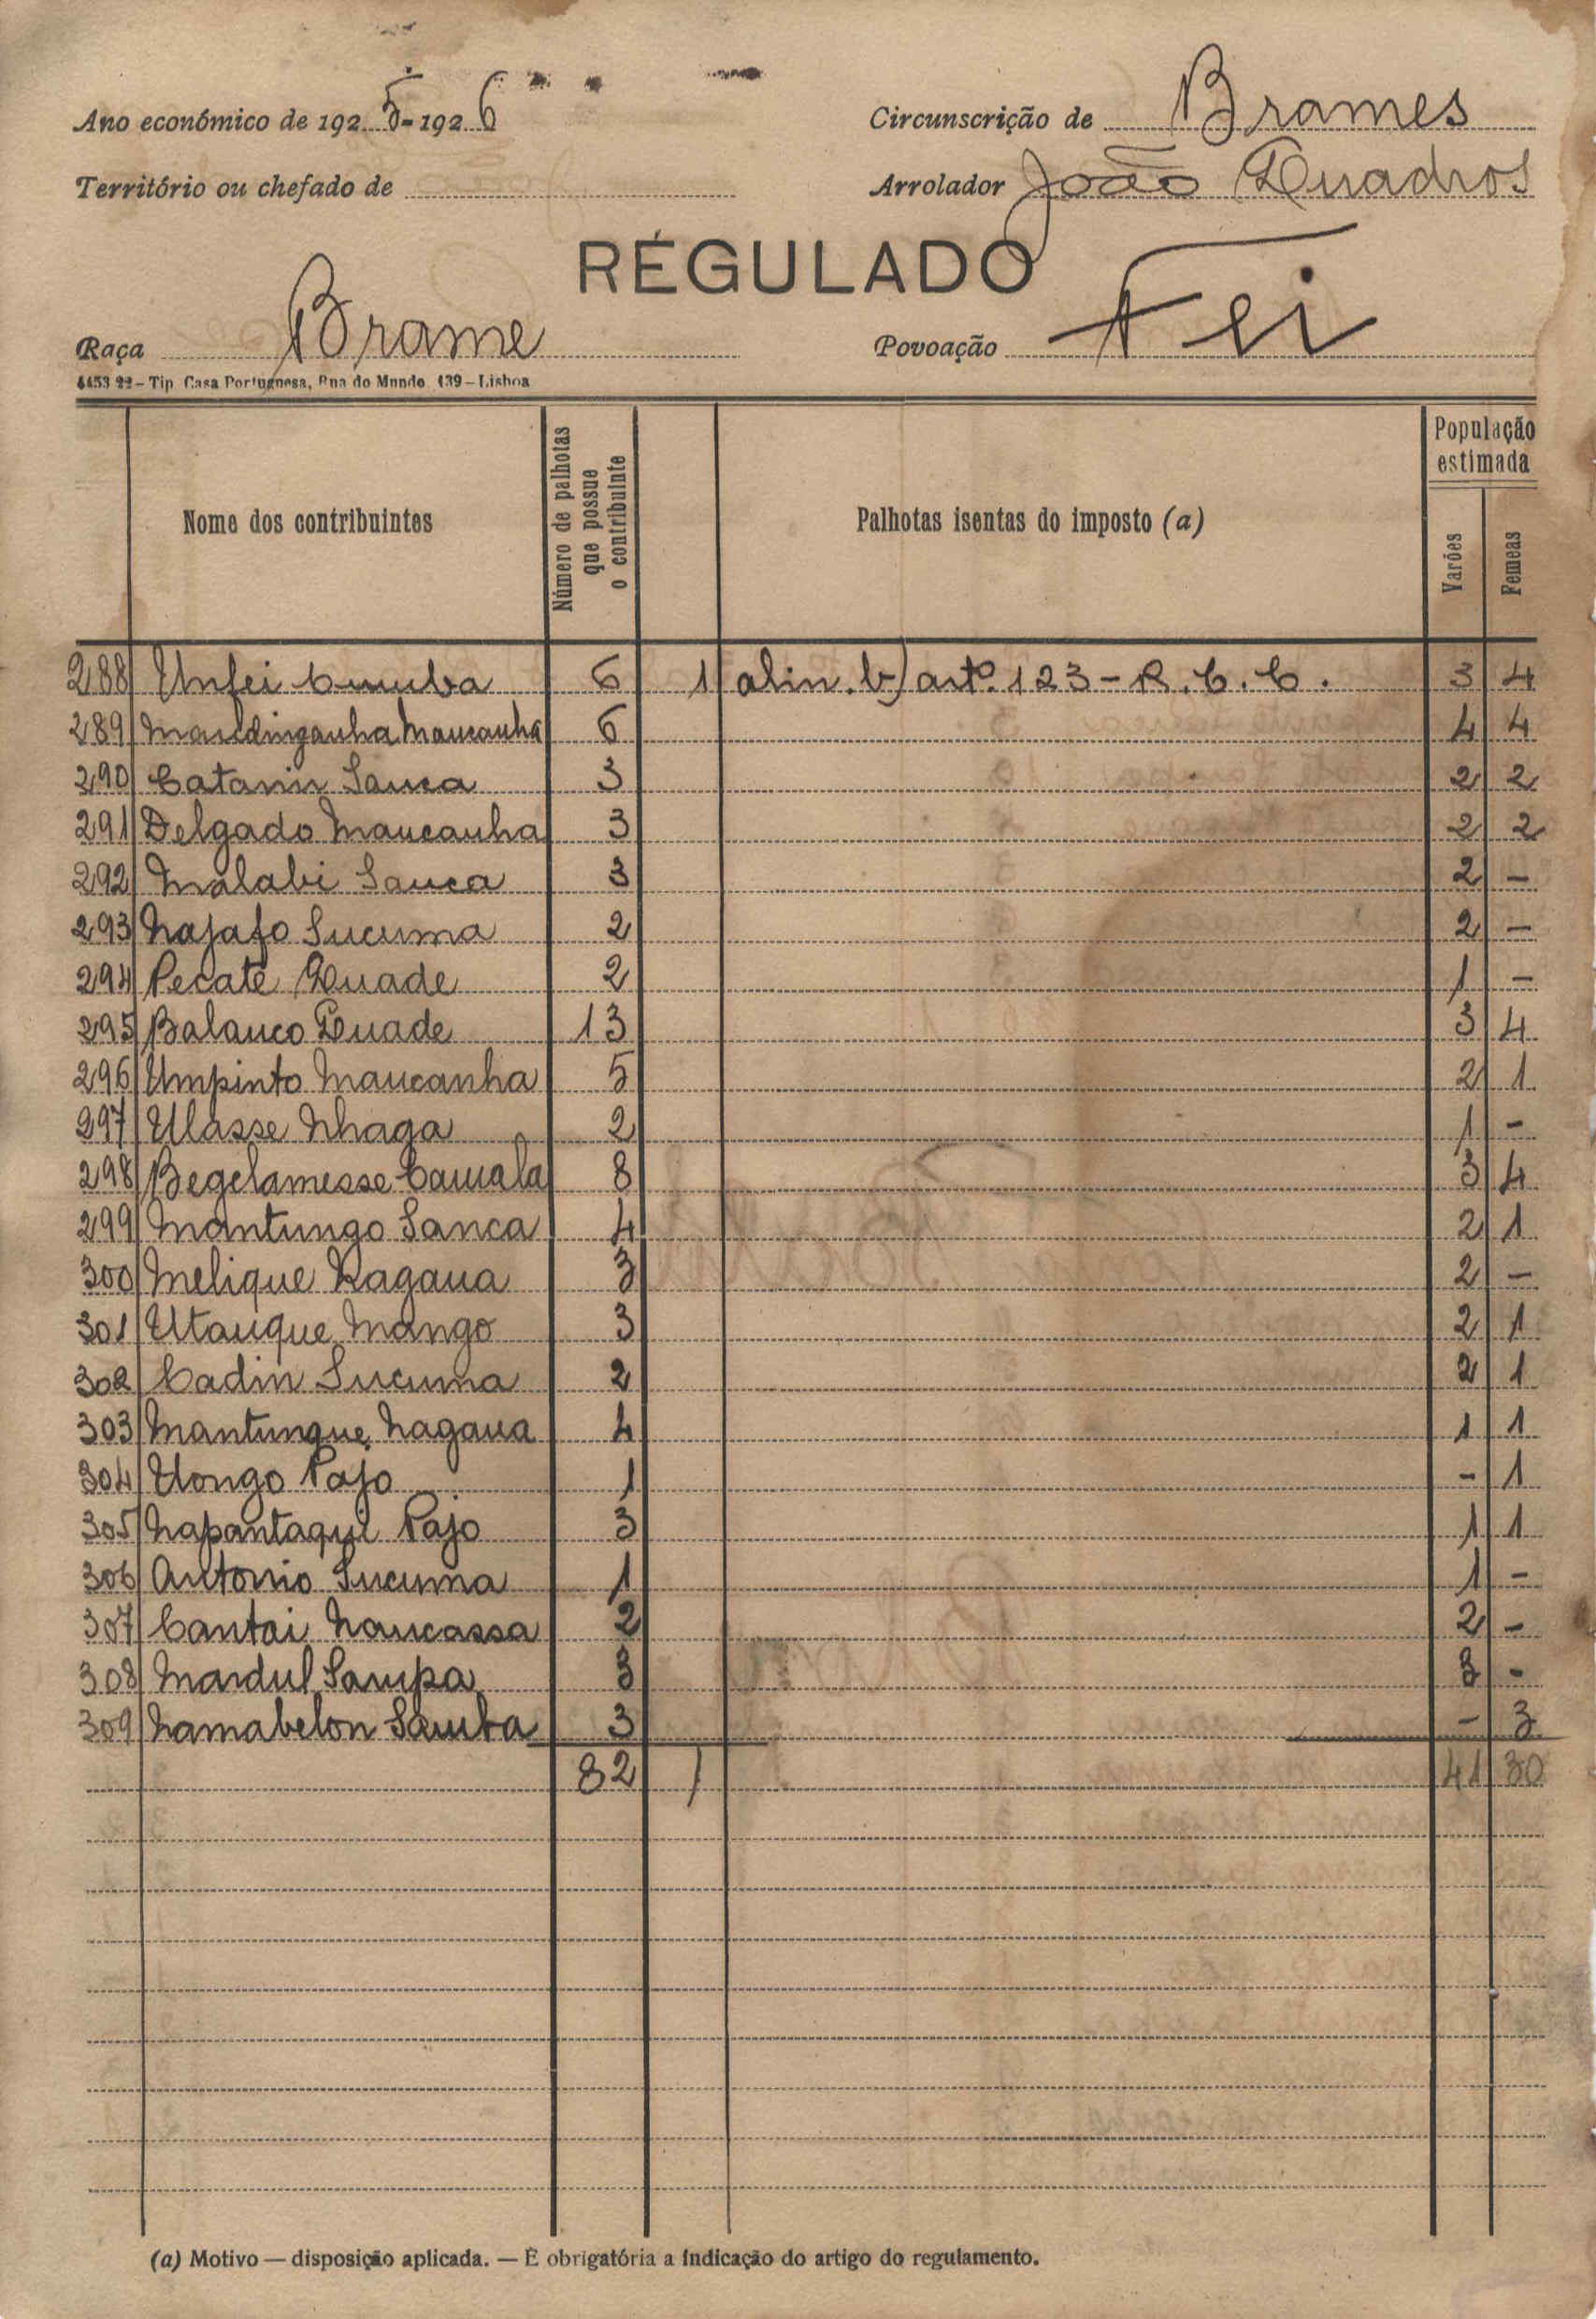 Ano económico de 1925-1926
Circunscrição de Brames
Território ou chefado de
Arrolador João Quadros
RÉGULADO
Raça Brame
Povoação Fei
4453 22 – Tip. Casa Portuguesa, Rua do Mundo 139 – Lisboa
Nome dos contribuintes
Número de palhotas que possue o contribuinte
Palhotas isentas do imposto (a)
População estimada
Varões
Femeas
288 Unfei 6 1 alin. b) artº. 123 - R. C. C. 3 4
289 Maucanha 6 4 4
290 Catanin Sanca 3 2 2
291 Delgado Maucanha 3 2 2
292 Malabi Sanca 3 2 -
293 Najafo Sucuma 2 2 -
294 Pecate Quade 2 1 -
295 Balanco Quade 13 3 4
296 Umpinto Maucanha 5 2 1
297 Ulasse Nhaga 2 1 -
298 Begelamesse 8 3 4
299 Mantungo Sanca 4 2 1
300 Melique Nagaua 3 2 -
301 Utauque Mango 3 2 1
302 Cadin Sucuma 2 2 1
303 Mantunque Nagaua 4 1 1
304 Uongo Pajo 1 - 1
305 Napantaque Pajo 3 1 1
306 Antonio Sucuma 1 1 -
307 Cantai Naucassa 2 2 -
308 Mandul Sampa 3 3 -
309 Namabelon Samba 3 - 3
82 1 41 30
(a) Motivo — disposição aplicada. — É obrigatória a indicação do artigo do regulamento.